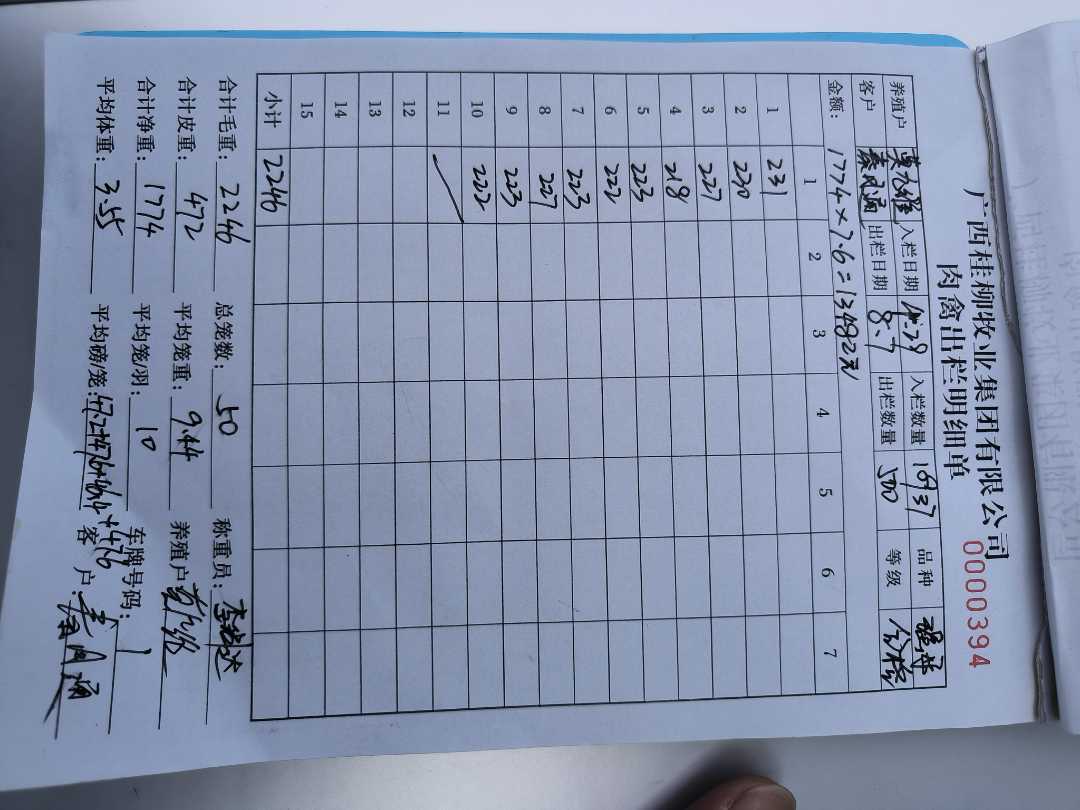 广西桂柳牧业集团有限公司
肉禽出栏明细单
0000394
养殖户 入栏日期 4.29 入栏数量 16937 品种
客户 出栏日期 8.7 出栏数量 500 等级 合格
金额: 1774×7.6=13482元
1 2 3 4 5 6 7
1 231
2 230
3 227
4 218
5 223
6 222
7 223
8 227
9 223
10 222
11
12
13
14
15
小计 2246
合计毛重: 2246 总笼数: 50 称重员:
合计皮重: 472 平均笼重: 9.44 养殖户
合计净重: 1774 平均笼/羽: 10 车牌号码:
平均体重: 3.55 平均磅/笼: 47.2+47.6+46.4+47.6 客户: